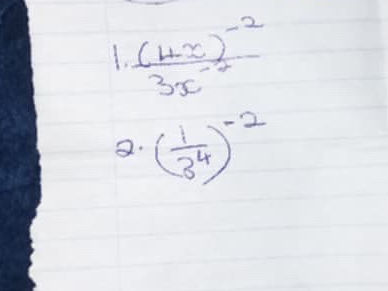 1. (4x)^-2 / 3x^-2
2. (1/3^4)^-2